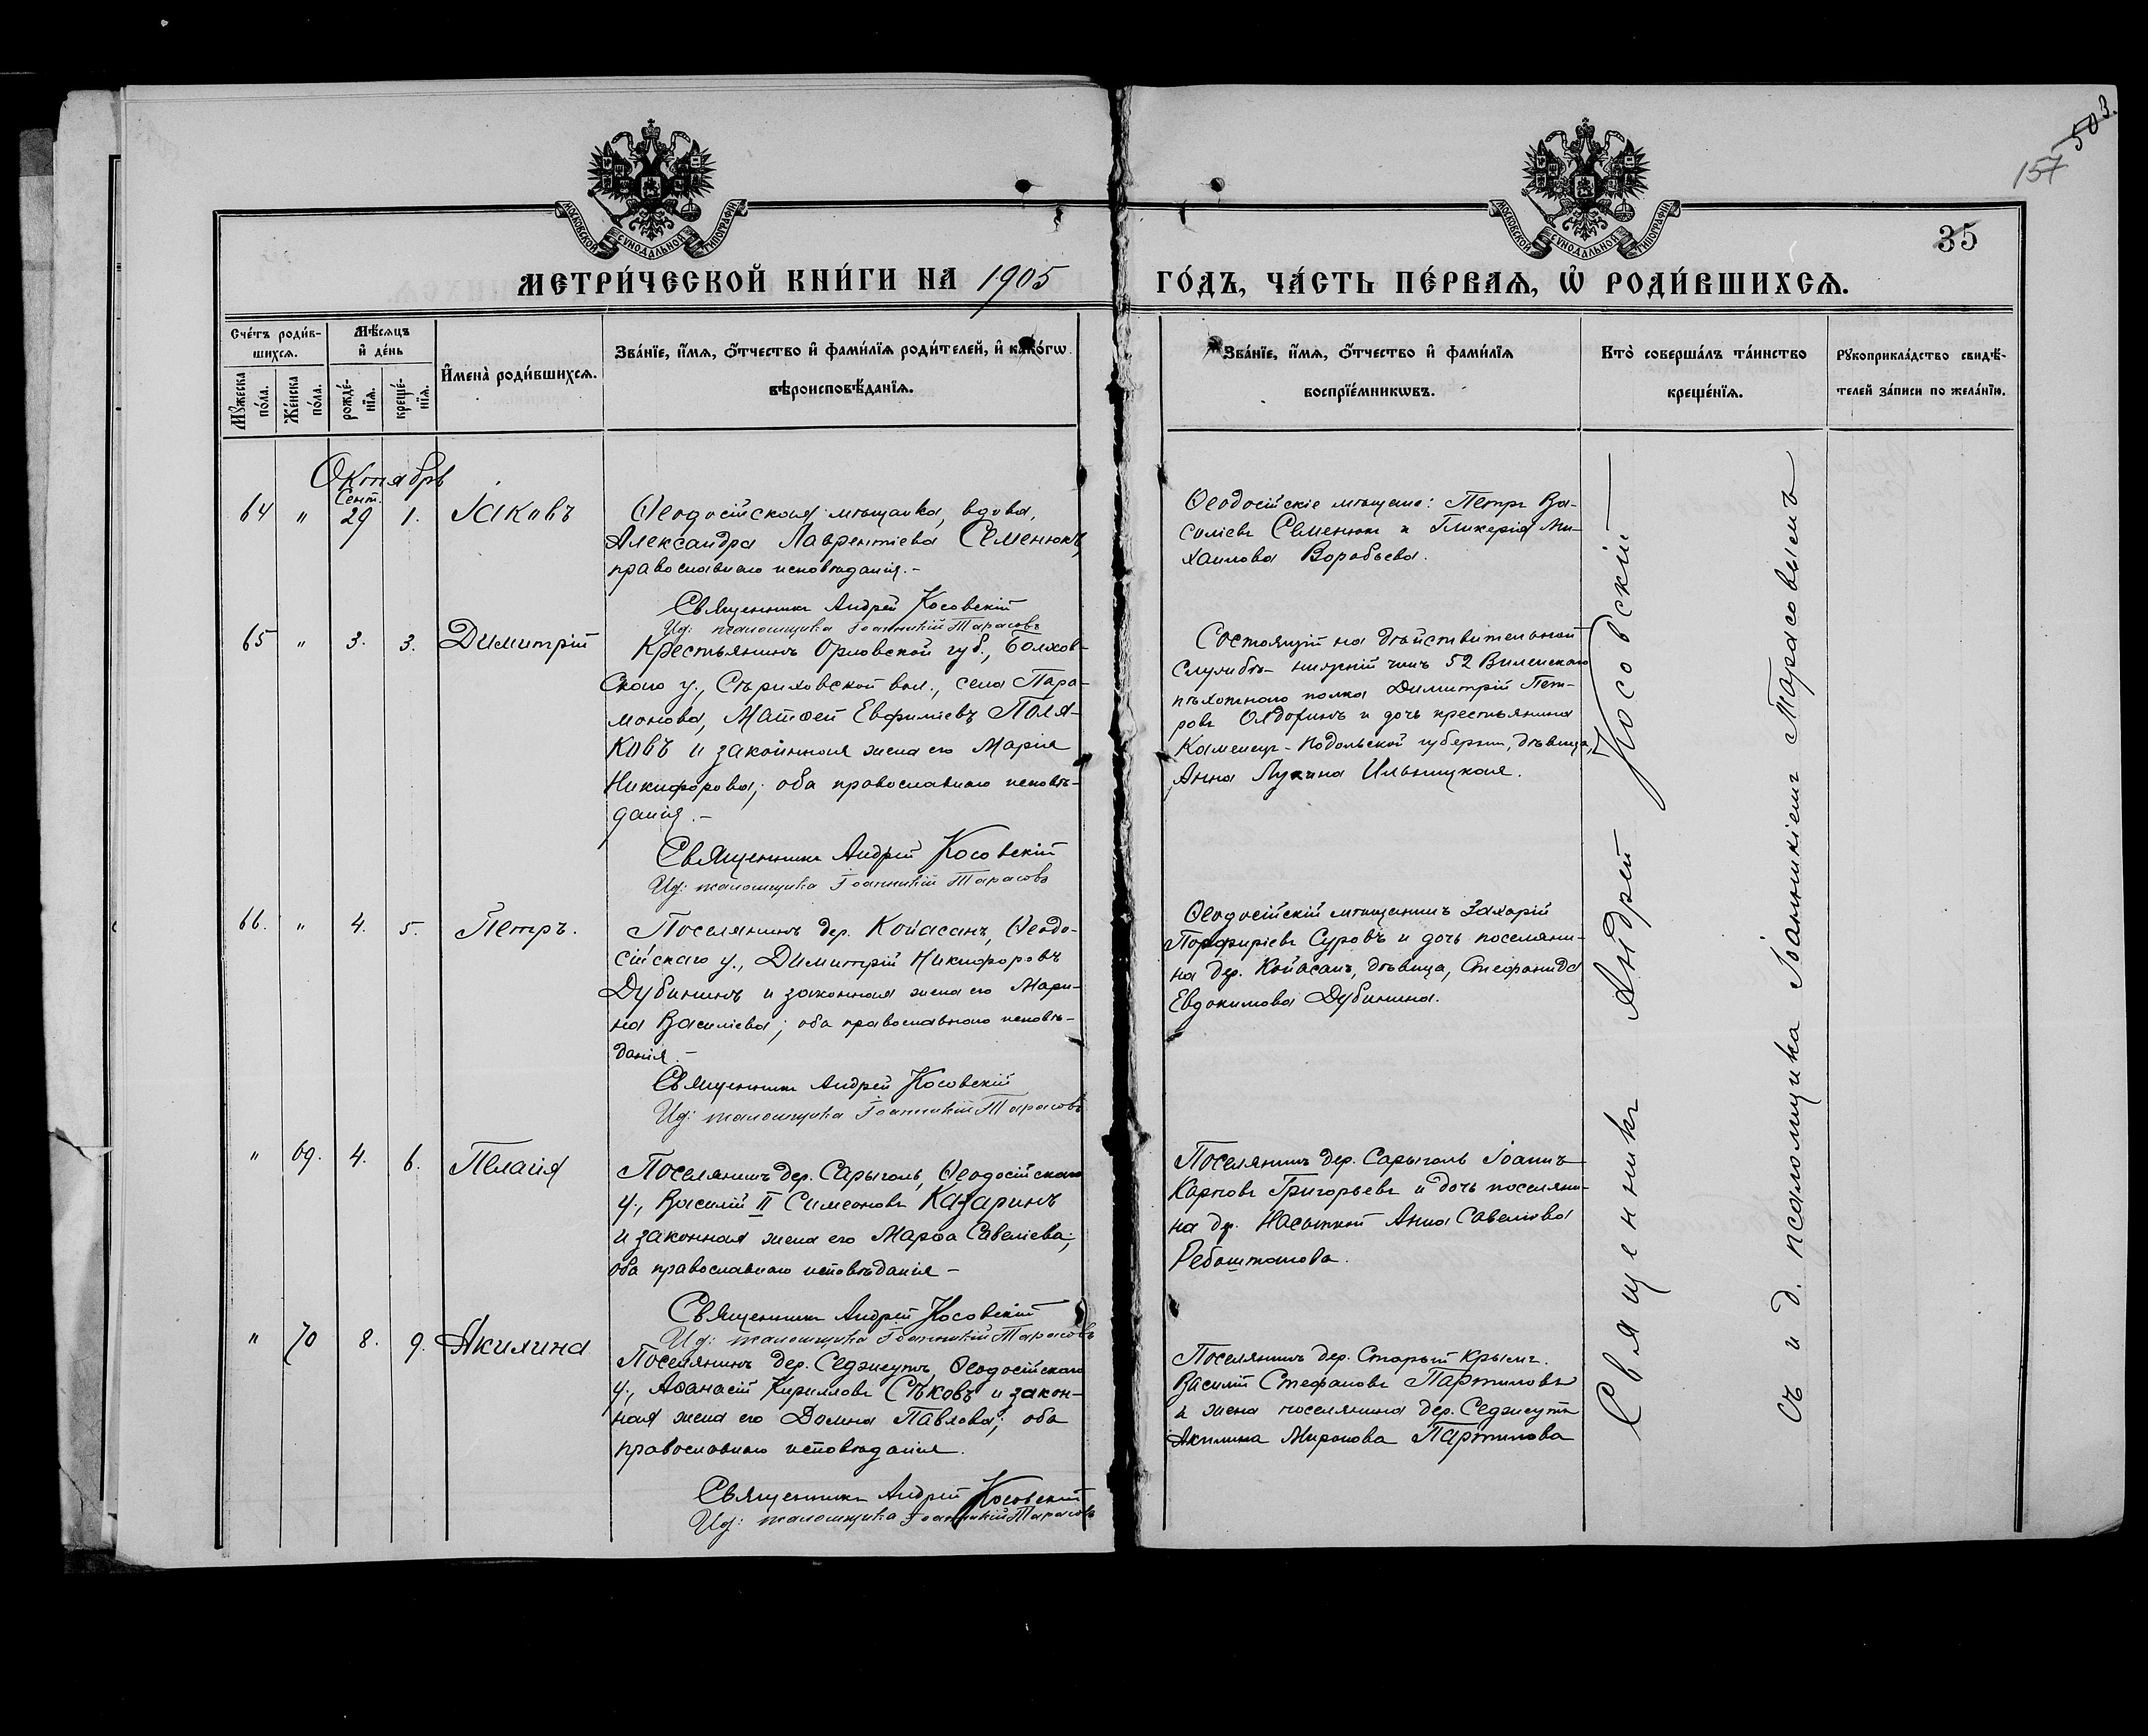 503.
157
35
МОСКОВСКОЙ СѴНОДАЛЬНОЙ ТИПОГРАФІИ
МОСКОВСКОЙ СѴНОДАЛЬНОЙ ТИПОГРАФІИ
МЕТРИ́ЧЕСКОЙ КНИ́ГИ НА 1905 ГО́ДЪ, ЧА́СТЬ ПЕ́РВАѦ, Ѡ҆ РОДИ́ВШИХСѦ.
Сче́тъ роди́в-
шихсѧ.
Мꙋ́жеска по́ла.
Же́нска по́ла.
Мѣ́сѧцъ
и҆ де́нь
рожде́-
нїѧ.
креще́-
нїѧ.
И҆мена̀ роди́вшихсѧ.
Зва́нїе, и҆́мѧ, ѻ҆́тчество и҆ фами́лїѧ роди́телей, и҆ како́гѡ
вѣроисповѣ́данїѧ.
Зва́нїе, и҆́мѧ, ѻ҆́тчество и҆ фами́лїѧ
воспрїе́мникѡвъ.
Кто̀ соверша́лъ та́инство
креще́нїѧ.
Рꙋкоприкла́дство свидѣ́-
телей за́писи по жела́нїю.
Октябрь
64 " Сент. 29 1. Іаковъ
Ѳеодосійская мѣщанка, вдова,
Александра Лаврентіева Семенюкъ,
православнаго исповѣданія.-
Священникъ Андрей Косовскій
Ид: псаломщика Іоанникій Тарасовъ
Ѳеодосійскіе мѣщане: Петръ Ва-
силіевъ Семенюкъ и Гликерія Ми-
хаилова Воробьева.
65 " 3. 3. Димитрій
Крестьянинъ Орловской губ., Болхов-
скаго у., Стриховской вол., села Пара-
монова, Матѳей Евфиміевъ Поля-
ковъ и законная жена его Марія
Никифорова; оба православнаго исповѣ-
данія.-
Священникъ Андрей Косовскій
Ид: псаломщика Іоанникій Тарасовъ
Состоящій на дѣйствительной
службѣ нижній чинъ 52 Виленскаго
пѣхотнаго полка Димитрій Пет-
ровъ и дочь крестьянина
Каменецъ-Подольской губерніи, дѣвица,
Анна Лукина Ильницкая.
66. " 4. 5. Петръ.
Поселянинъ дер. Койасанъ, Ѳеодо-
сійскаго у., Димитрій Никифоровъ
Дубининъ и законная жена его Мари-
на Василіева; оба православнаго исповѣ-
данія.-
Священникъ Андрей Косовскій
Ид: псаломщика Іоанникій Тарасовъ
Ѳеодосійскій мѣщанинъ Захарій
Порфиріевъ Суровъ и дочь поселяни-
на дер. Койасанъ, дѣвица, Стефанида
Евдокимова Дубинина.
" 69. 4. 6. Пелагія
Поселянинъ дер. Сарыголь, Ѳеодосійскаго
у., Василій II Симеоновъ Казаринъ
и законная жена его Марѳа Савеліева;
оба православнаго исповѣданія -
Священникъ Андрей Косовскій
Ид: псаломщика Іоанникій Тарасовъ
Поселянинъ дер. Сарыголь Іоаннъ
Карповъ Григорьевъ и дочь поселяни-
на дер. Насыпкой Анна Савеліева
Ребоштанова.
" 70 8. 9. Акилина
Поселянинъ дер.Седжеутъ, Ѳеодосійскаго
у., Аѳанасій Кирилловъ Сѣковъ и закон-
ная жена его Домна Павлова; оба
православнаго исповѣданія.
Священникъ Андрей Косовскій
Ид: псаломщика Іоанникій Тарасовъ
Поселянинъ дер. Старый Крымъ
Василій Стефановъ Партиловъ
и жена поселянина дер. Седжеутъ
Акилина Миронова Партилова
Священникъ Андрей Косовскій
съ и д. псаломщика Іоанникіемъ Тарасовымъ